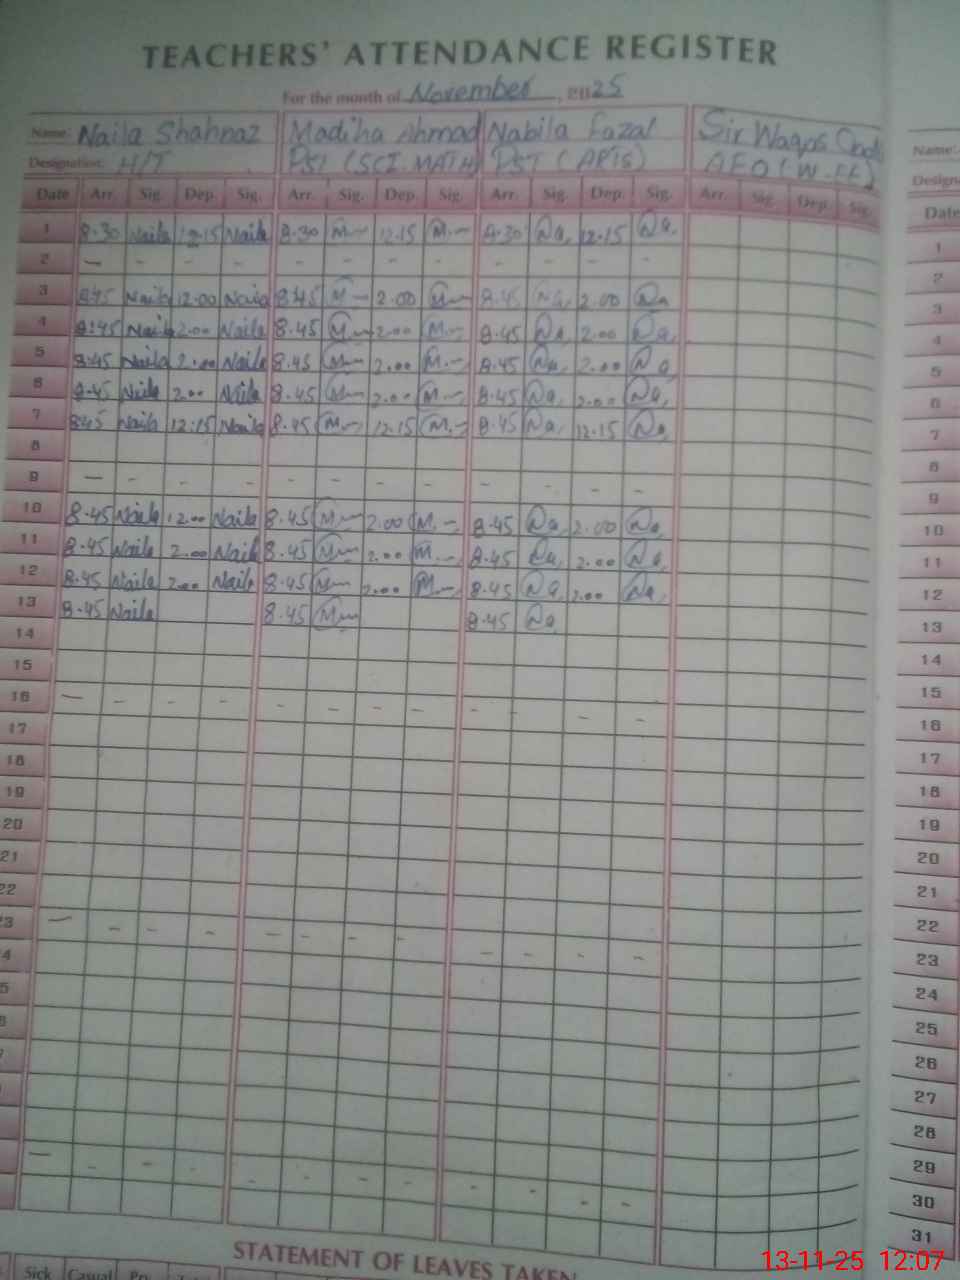 TEACHERS' ATTENDANCE REGISTER
For the month of November, 2025
Name: Naila Shahnaz Madiha Ahmad Nabila Fazal Sir Waqas Name:
Designation: H/T PST (SCI.MATH) PST (ARTS) AEO (W-EE) Design
Date Arr. Sig. Dep. Sig. Arr. Sig. Dep. Sig. Arr. Sig. Dep. Sig. Arr. Sig. Dep. Sig. Date
1 8.30 Naila 12.15 Naila 8.30 M 12.15 M 8.30 Na 12.15 Na 1
2 — - - - - - - - - - - - 2
3 8.45 Naila 12.00 Naila 8.45 M 2.00 M 8.45 Na 2.00 Na 3
4 8.45 Naila 2.00 Naila 8.45 M 2.00 M 8.45 Na 2.00 Na 4
5 8.45 Naila 2.00 Naila 8.45 M 2.00 M 8.45 Na 2.00 Na 5
6 8.45 Naila 2.00 Naila 8.45 M 2.00 M 8.45 Na 2.00 Na 6
7 8.45 Naila 12.15 Naila 8.45 M 12.15 M 8.45 Na 12.15 Na 7
8 8
9 — - - - - - - - - - - - 9
10 8.45 Naila 12.00 Naila 8.45 M 2.00 M 8.45 Na 2.00 Na 10
11 8.45 Naila 2.00 Naila 8.45 M 2.00 M 8.45 Na 2.00 Na 11
12 8.45 Naila 2.00 Naila 8.45 M 2.00 M 8.45 Na 2.00 Na 12
13 8.45 Naila 8.45 M 8.45 Na 13
14 14
15 15
16 — - - - - - - - - - - - 16
17 17
18 18
19 19
20 20
21 21
22 22
23 — - - - - - - - - - - - 23
4 24
5 25
6 26
7 27
28
29
— - - - - - - - - - - - 30
31
STATEMENT OF LEAVES TAKEN
Sick Casual
13-11-25 12:07